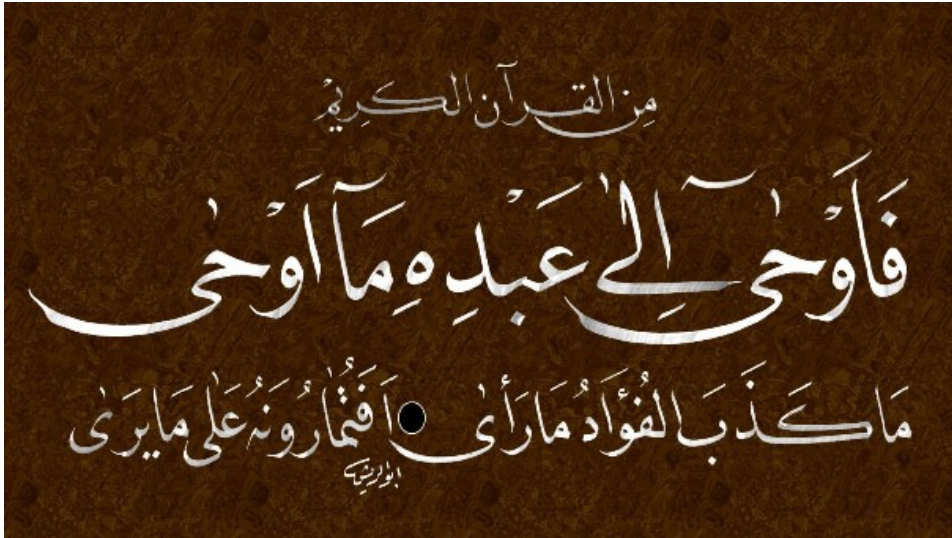 مِن القرآن الكَرِيمْ
فَأَوْحىٰ آِلىٰ عَبْدِهِ مَآ اَوْحىٰ
مَا كَذَبَ الفُؤَادُ مَا رَأىٰ اَفَتُمٰارُونَهُ عَلىٰ مَا يَرَىٰ